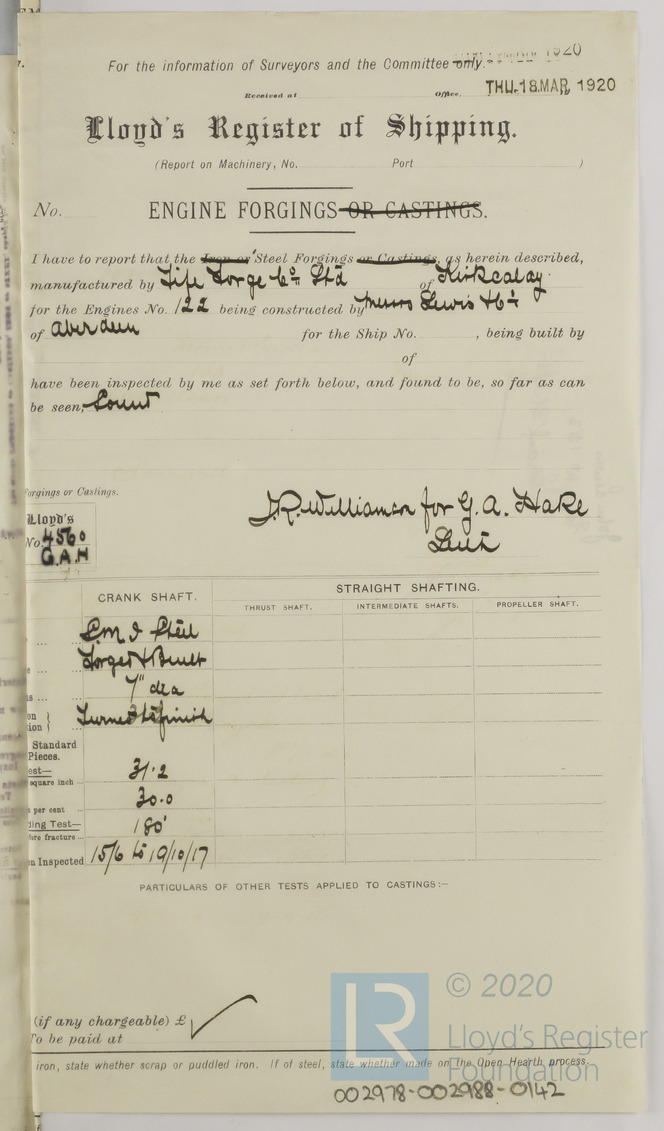 For the information of Surveyors and the Committee only.
1920
Received at Office,
THU. 18 MAR, 1920
Lloyd's Register of Shipping.
(Report on Machinery, No. Port )
No. ENGINE FORGINGS OR CASTINGS.
I have to report that the Iron or Steel Forgings or Castings, as herein described,
manufactured by Fife Forge Co Ltd of Kirkcaldy
for the Engines No. 122 being constructed by Messrs Lewis & Co
of Aberdeen for the Ship No. , being built by
of
have been inspected by me as set forth below, and found to be, so far as can
be seen, Sound
orgings or Castings.
J.R. Williamson for G. A. Hake
Leith
Lloyd's
No. 4560
G.A.H
CRANK SHAFT. STRAIGHT SHAFTING.
THRUST SHAFT. INTERMEDIATE SHAFTS. PROPELLER SHAFT.
S.M I Steel
Forged & Built
7" dia
Turned to finish
Standard
Pieces.
est—
square inch 31.2
per cent 30.0
ding Test—
ore fracture 180°
n Inspected 15/6 to 19/10/17
PARTICULARS OF OTHER TESTS APPLIED TO CASTINGS:—
(if any chargeable) £
To be paid at
iron, state whether scrap or puddled iron. If of steel, state whether made on the Open Hearth process.
LR
© 2020
Lloyd's Register
Foundation
002978-002988-0142